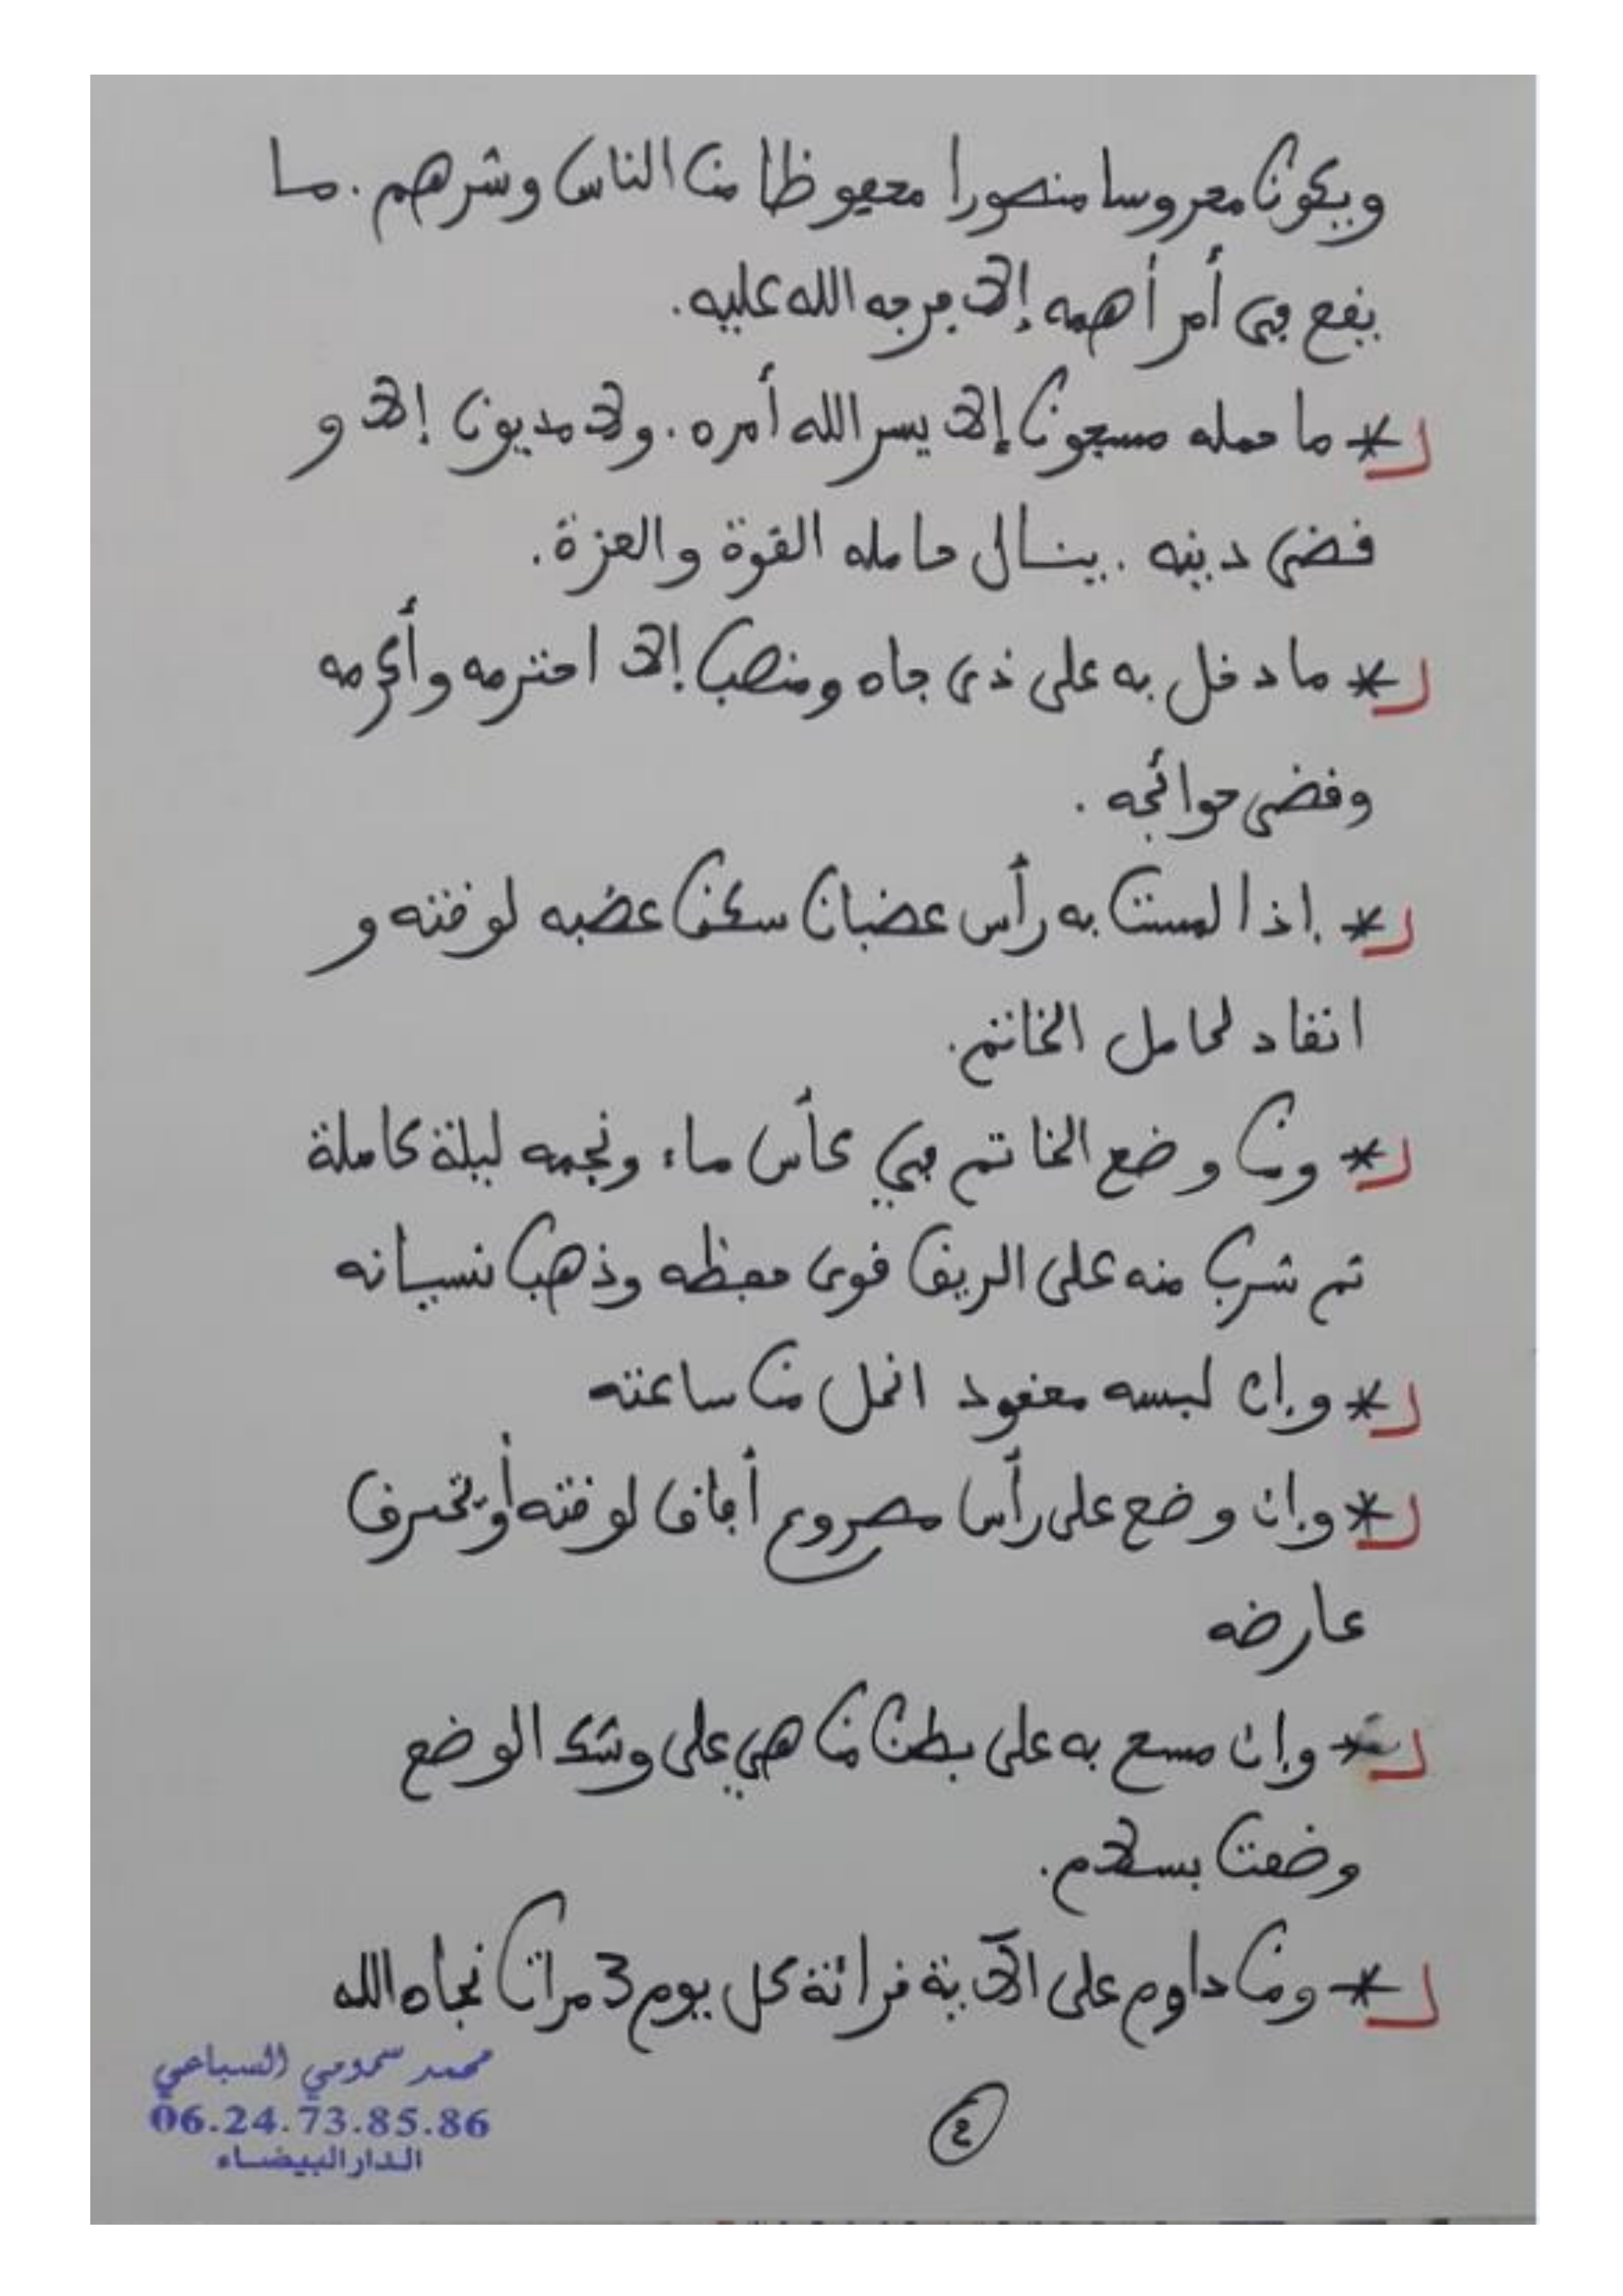 ويكون محروسا منصورا محفوظا من الناس وشرهم. ما
يقع في أمر أهمه إلا فرجه الله عليه.
* ما حمله مسجون إلا يسر الله أمره. ولا مديون إلا و
قضى دينه. ينال حامله القوة والعزة.
* ما دخل به على ذي جاه ومنصب إلا احترمه وأكرمه
وقضى حوائجه.
* إذا لمست به رأس غضبان سكن غضبه لوقته و
انقاد لحامل الخاتم.
* ومن وضع الخاتم في كأس ماء ونجمه ليلة كاملة
تم شرب منه على الريق قوى حفظه وذهب نسيانه
* وإن لبسه معقود انحل من ساعته
* وإن وضع على رأس مصروع أفاق لوقته أو يحرق
عارضه
* وإن مسح به على بطن من هي على وشك الوضع
وضعت بسلام.
* ومن داوم على الآية قرائة كل يوم 3 مرات نجاه الله
محمد سمومي السباعي
06.24.73.85.86
الدار البيضاء
٤